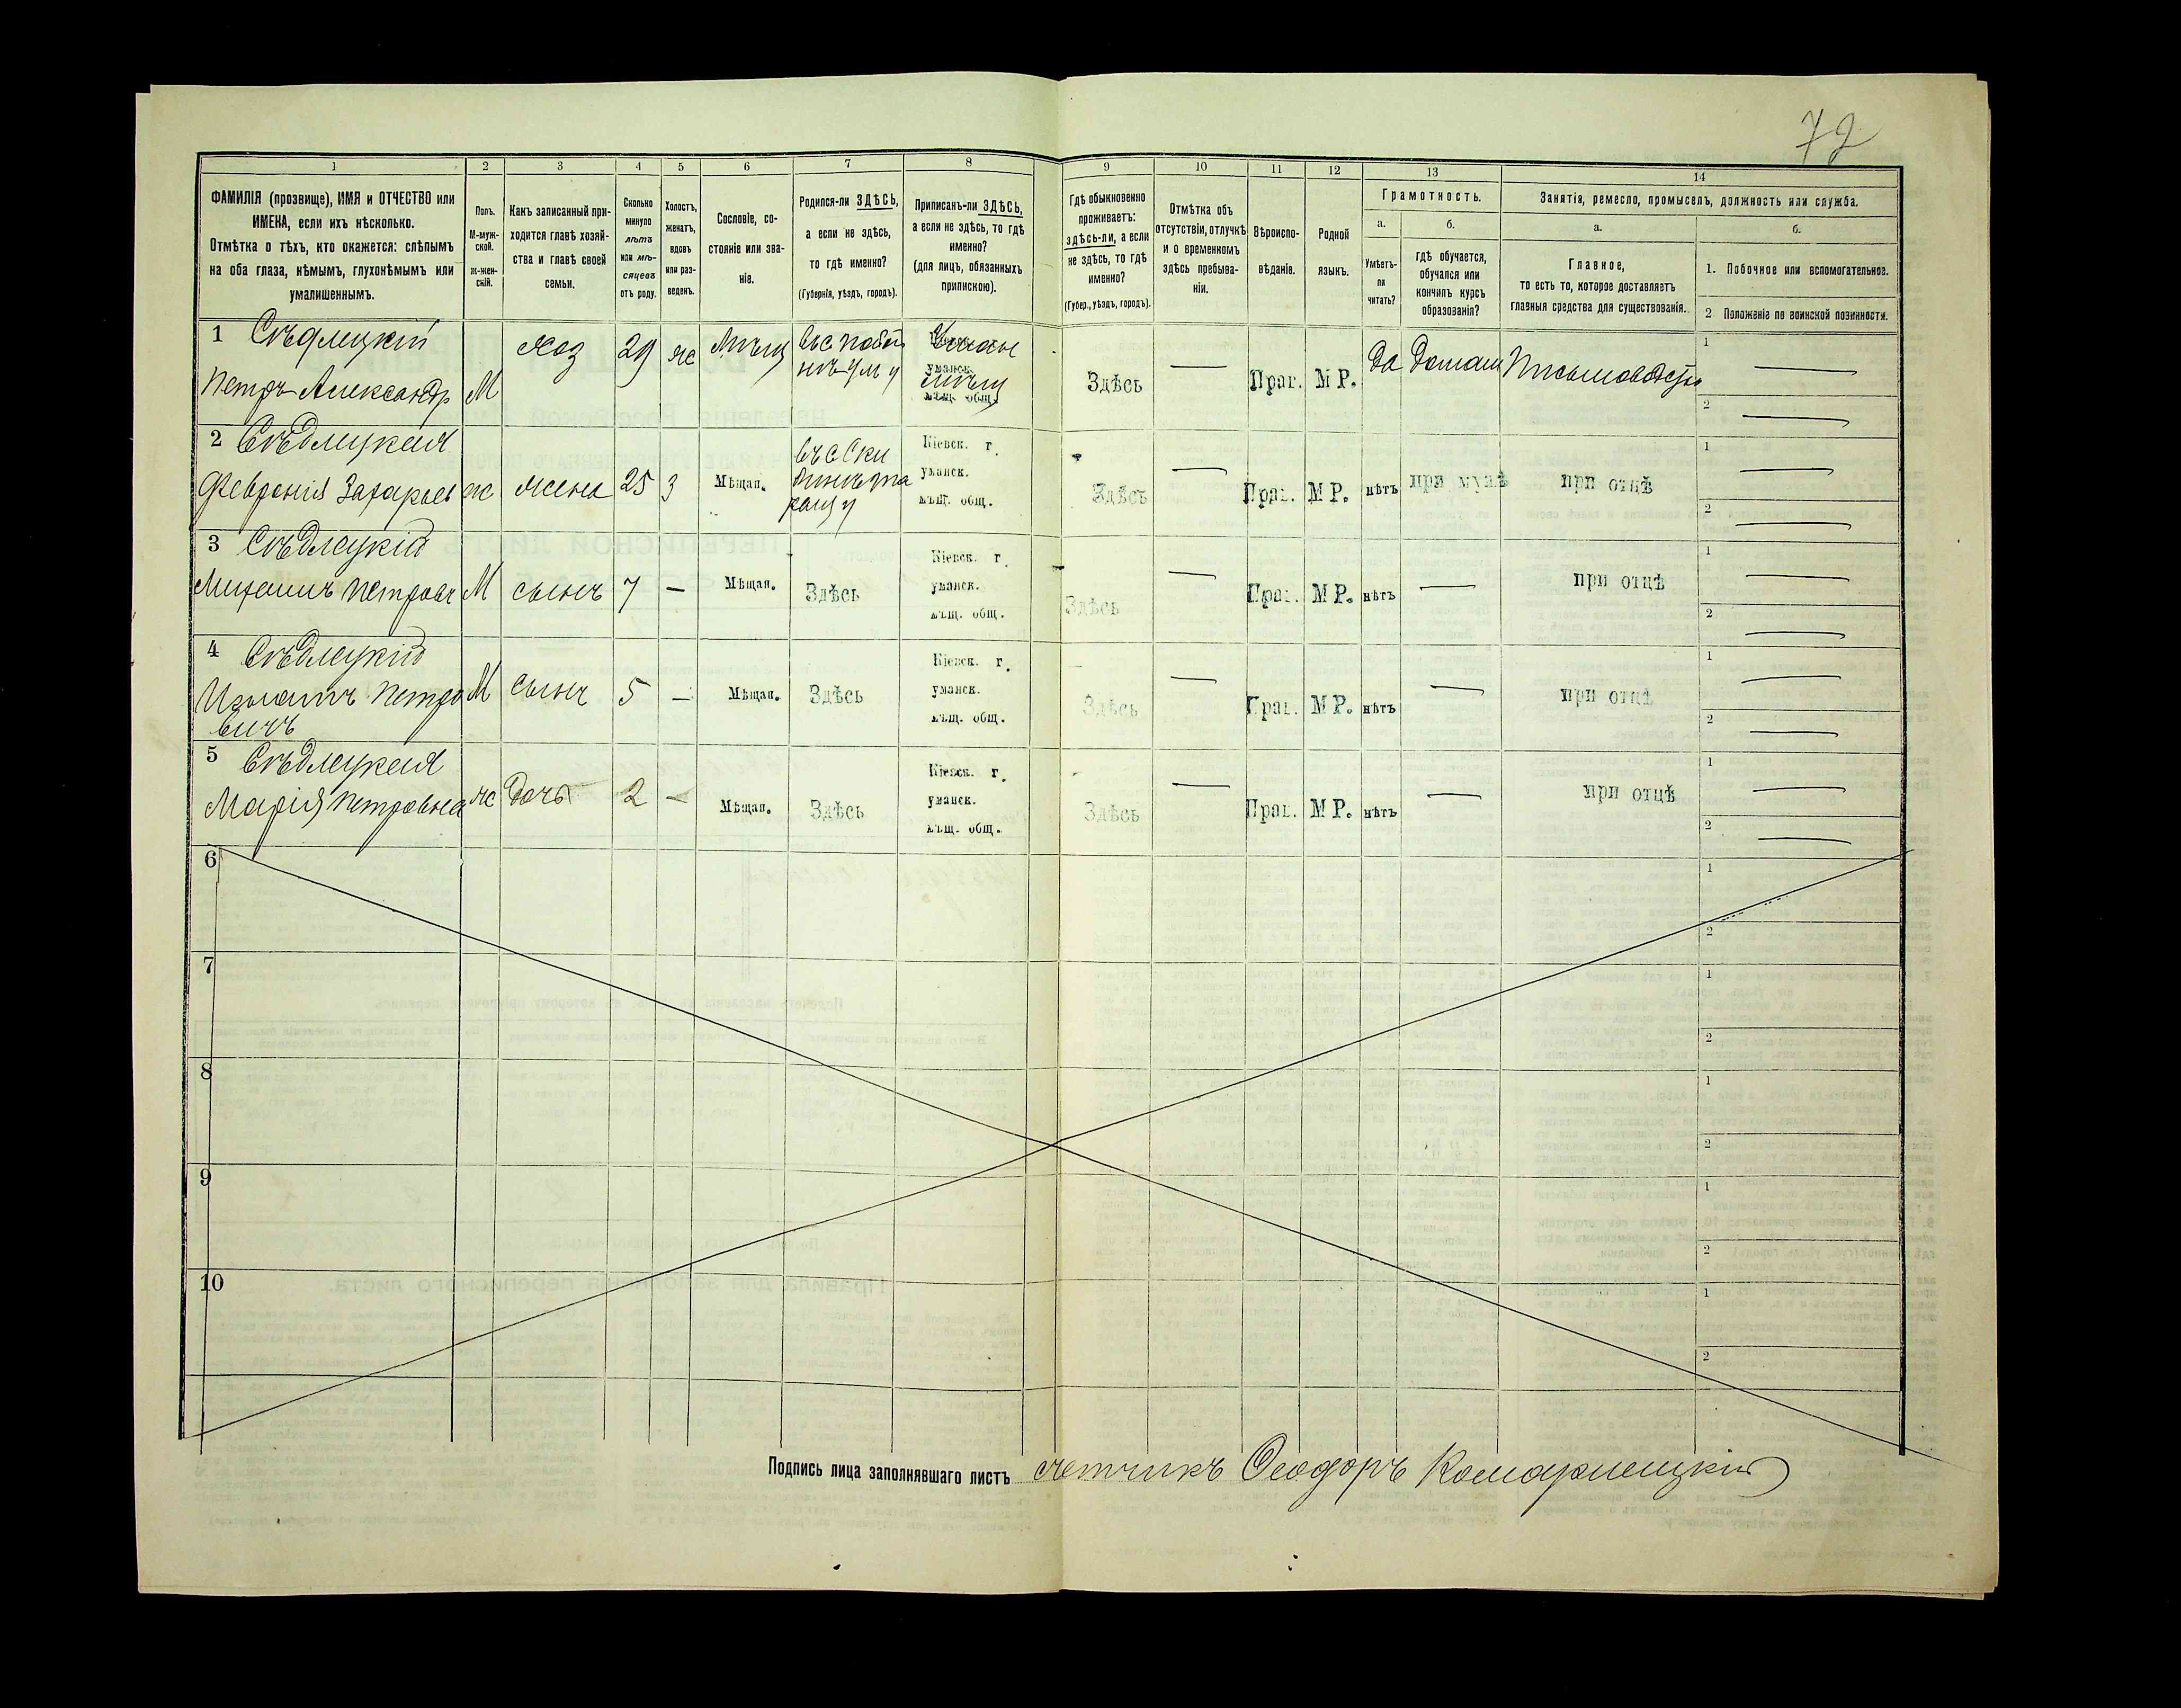 72
1 2 3 4 5 6 7 8 9 10 11 12 13 14
ФАМИЛІЯ (прозвище), ИМЯ и ОТЧЕСТВО или
ИМЕНА, если ихъ нѣсколько.
Отмѣтка о тѣхъ, кто окажется: слѣпымъ
на оба глаза, нѣмымъ, глухонѣмымъ или
умалишеннымъ.
Полъ.
М-муж-
ской.
ж-жен-
скій.
Какъ записанный при-
ходится главѣ хозяй-
ства и главѣ своей
семьи.
Сколько
минуло
лѣтъ
или мѣ-
сяцевъ
отъ роду.
Холостъ,
женатъ,
вдовъ
или раз-
веденъ.
Сословіе, со-
стояніе или зва-
ніе.
Родился-ли ЗДѢСЬ,
а если не здѣсь,
то гдѣ именно?
(Губернія, уѣздъ, городъ).
Приписанъ-ли ЗДѢСЬ,
а если не здѣсь, то гдѣ
именно?
(для лицъ, обязанныхъ
припискою).
Гдѣ обыкновенно
проживаетъ:
здѣсь-ли, а если
не здѣсь, то гдѣ
именно?
(Губер., уѣздъ, городъ).
Отмѣтка объ
отсутствіи, отлучкѣ
и о временномъ
здѣсь пребыва-
ніи.
Вѣроиспо-
вѣданіе.
Родной
языкъ.
Грамотность.
а.
Умѣетъ-
ли
читать?
б.
гдѣ обучается,
обучался или
кончилъ курсъ
образованія?
Занятія, ремесло, промыселъ, должность или служба.
а.
Главное,
то есть то, которое доставляетъ
главныя средства для существованія.
б.
1. Побочное или вспомогательное.
2 Положеніе по воинской повинности.
1 Сѣдлецкій
Петръ Александр М хоз 29 ж Мѣщ Здѣсь Прав. М Р. Да Домаш Письмовод
1
2
2 Сѣдлецкая
Февронія Захарьев ж жена 25 З Мѣщан. Кіевск. г. уманск. мѣщ. общ. Здѣсь Прав. М Р. нѣтъ при мужѣ при отцѣ
1
2
3 Сѣдлецкій
Михаилъ Петрович М сынъ 7 — Мѣщан. Здѣсь Кіевск. г. уманск. мѣщ. общ. Здѣсь — Прав. М Р. нѣтъ — при отцѣ
1
2
4 Сѣдлецкій
Игнатъ Петро
вичъ М сынъ 5 — Мѣщан. Здѣсь Кіевск. г. уманск. мѣщ. общ. Здѣсь — Прав. М Р. нѣтъ — при отцѣ
1
2
5 Сѣдлецкая
Марія Петровна ж Дочь 2 — Мѣщан. Здѣсь Кіевск. г. уманск. мѣщ. общ. Здѣсь — Прав. М Р. нѣтъ — при отцѣ
1
2
6
1
2
7
1
2
8
1
2
9
1
2
10
1
2
Подпись лица заполнявшаго листъ счетчикъ Ѳеодоръ Комарнецкій